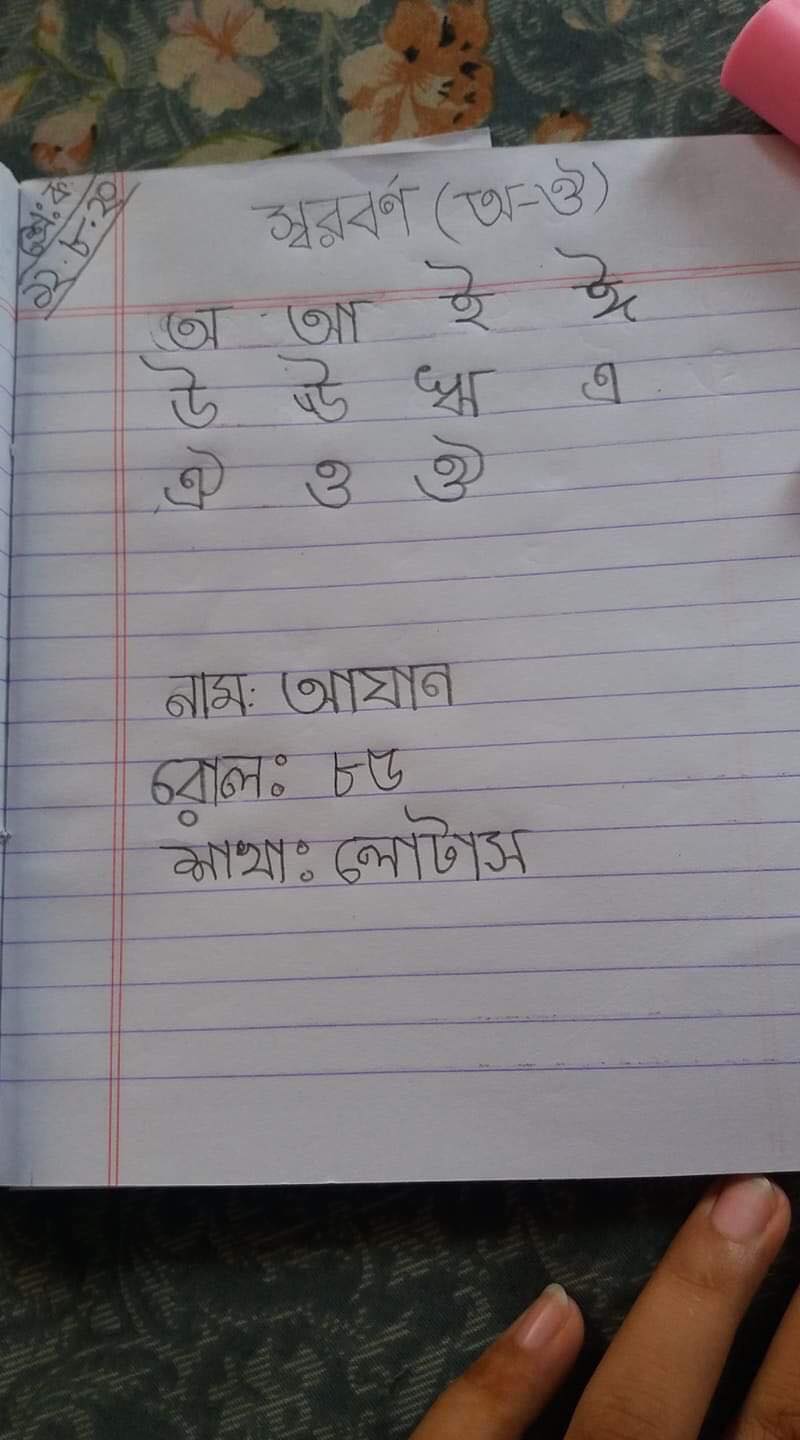 শ্রে: ক
১২.৮.২০
স্বরবর্ণ (অ-ঔ)
অ আ ই ঈ
উ ঊ ঋ এ
ঐ ও ঔ
নাম: আযান
রোলঃ ৮৬
শাখাঃ লোটাস